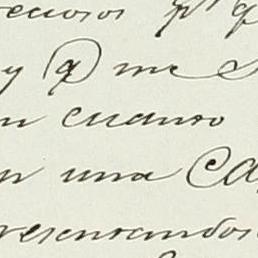 recioso
y q me
n cuanto
n una Ca
resentandos